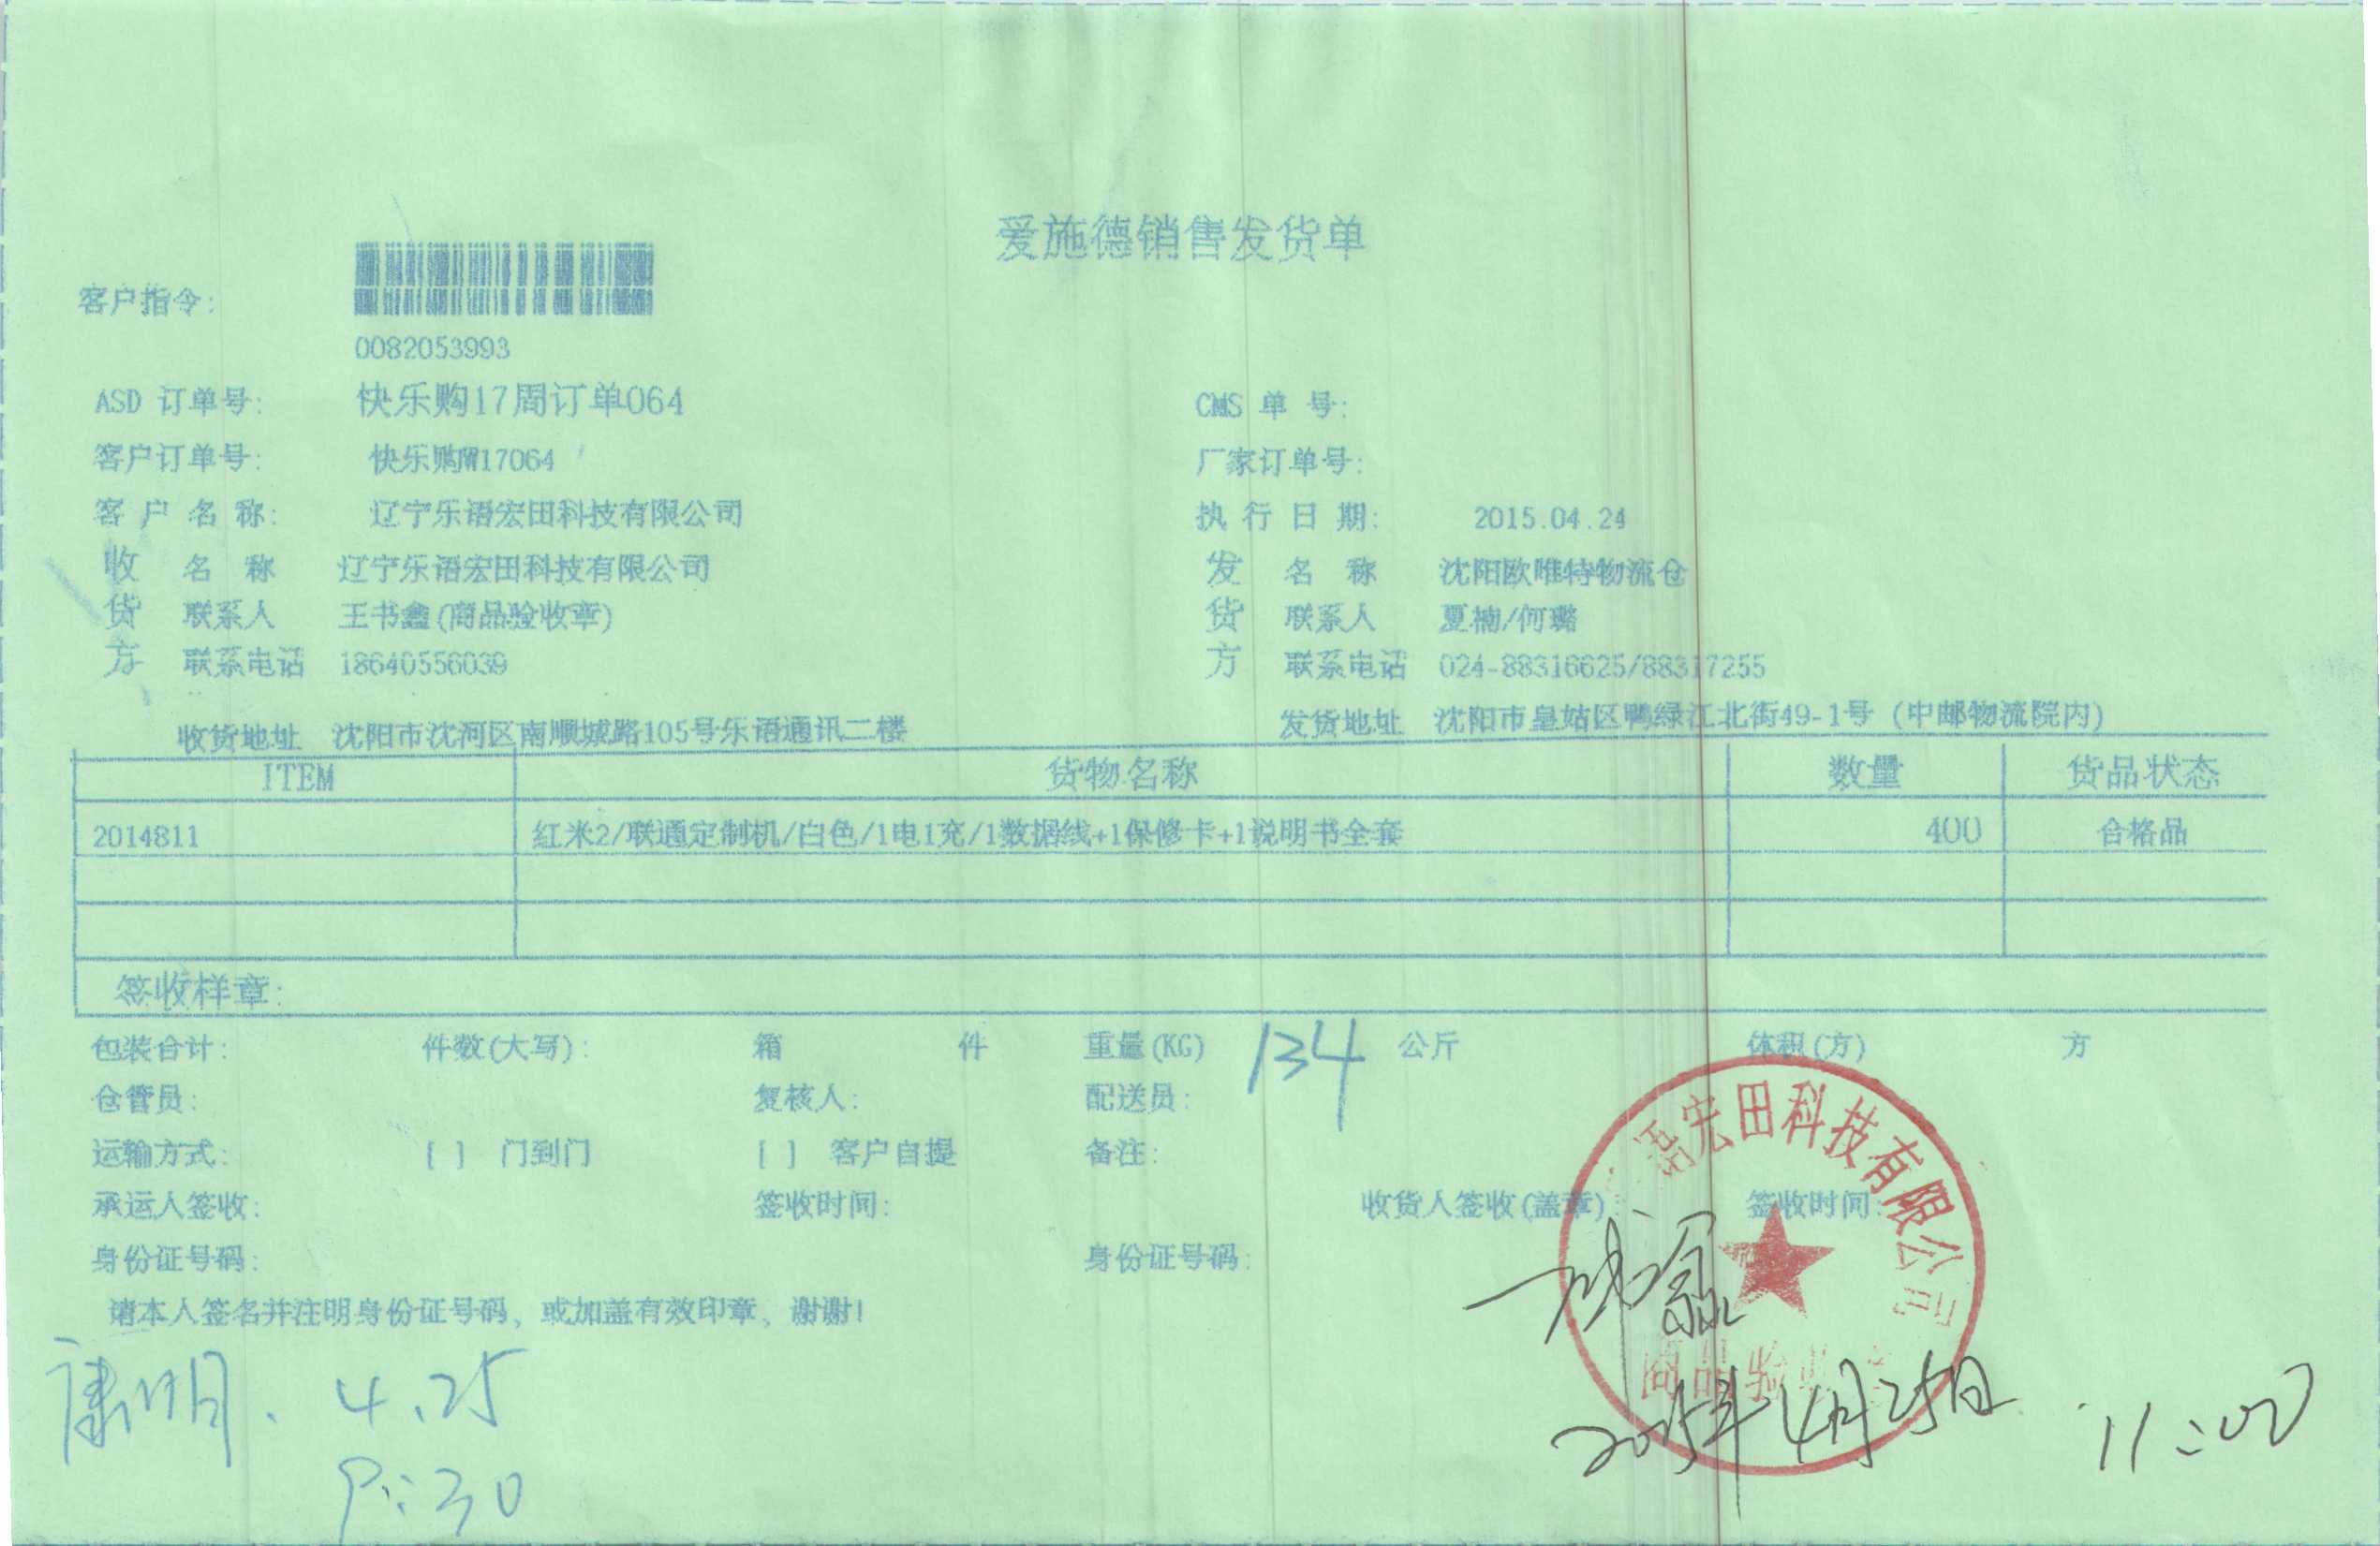 爱施德销售发货单
客户指令:
0082053993
ASD 订单号: 快乐购17周订单064 CMS 单 号:
客户订单号: 快乐购W17064 厂家订单号:
客 户 名 称: 辽宁乐语宏田科技有限公司 执 行 日 期: 2015.04.24
收 名 称 辽宁乐语宏田科技有限公司 发 名 称 沈阳欧唯特物流仓
货 联系人 王书鑫(商品验收章) 货 联系人 夏楠/何璐
方 联系电话 18640556039 方 联系电话 024-88316625/88317255
收货地址 沈阳市沈河区南顺城路105号乐语通讯二楼 发货地址 沈阳市皇姑区鸭绿江北街49-1号 (中邮物流院内)
ITEM 货物名称 数量 货品状态
2014811 红米2/联通定制机/白色/1电1充/1数据线+1保修卡+1说明书全套 400 合格品
签收样章:
包装合计: 件数(大写): 箱 件 重量(KG) 134 公斤 体积(方) 方
仓管员: 复核人: 配送员:
运输方式: [ ] 门到门 [ ] 客户自提 备注:
承运人签收: 签收时间: 收货人签收(盖章): 签收时间:
身份证号码: 身份证号码:
请本人签名并注明身份证号码、或加盖有效印章、谢谢!
语宏田科技有限公司
商品验收
康明. 4.25
9:30
2015年4月25日 11:00